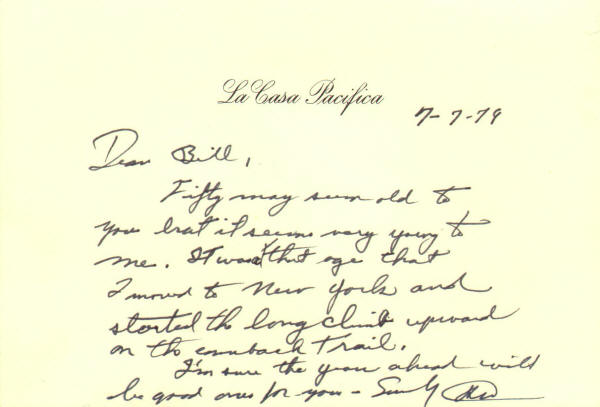 La Casa Pacifica
7-7-79
Dear Bill,
Fifty may seem old to
you but it seems very young to
me. It was at that age that
I moved to New York and
started the long climb upward
on the comeback trail.
I'm sure the years ahead will
be good ones for you -